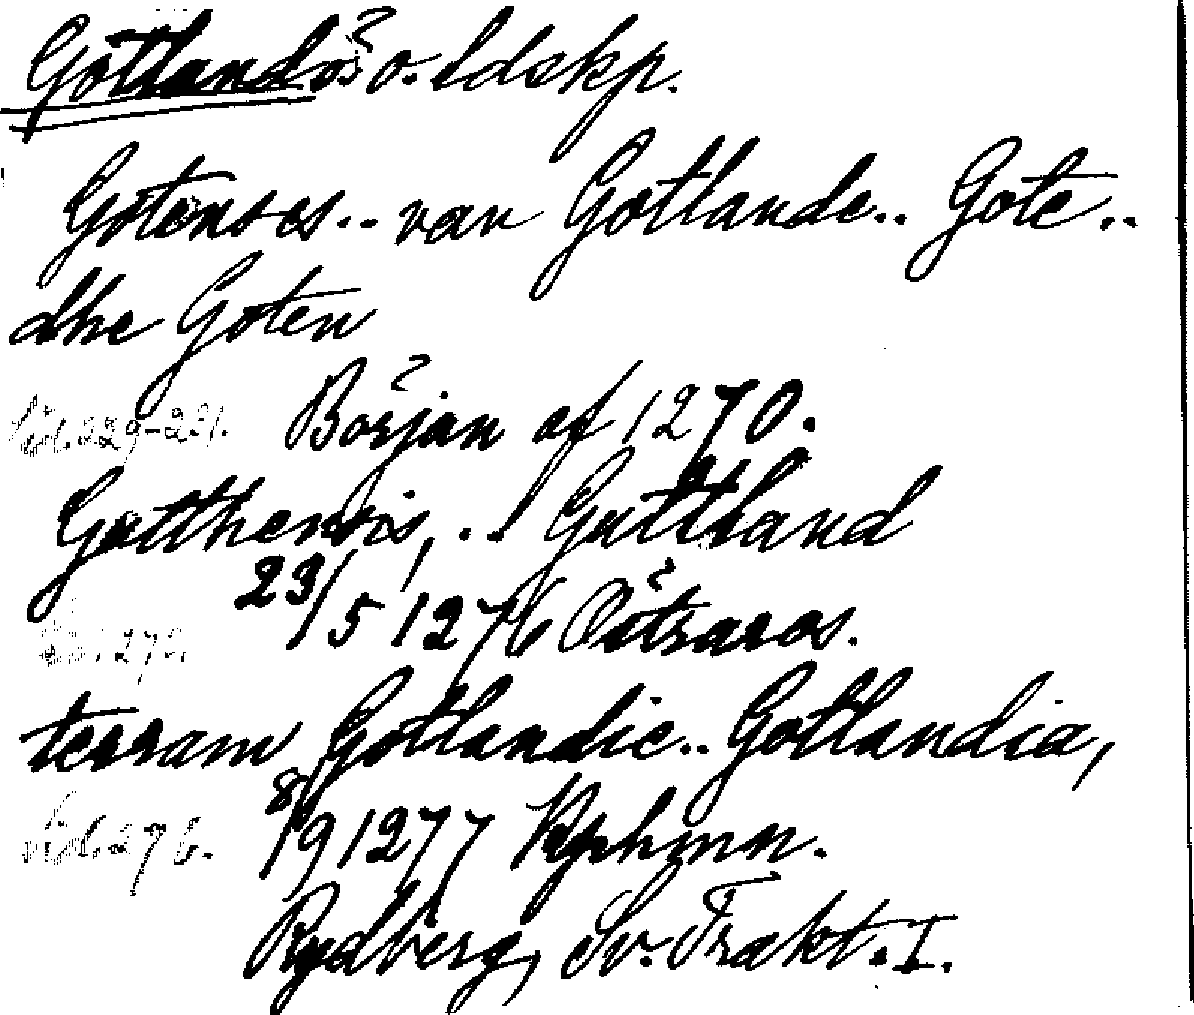 Gotland ö. o. ldskp.
Gotenses.. van Gotlande.. Gote..
dhe Goten
sid. 229-231. Början af 1270.
Gutthensis, .. Guttland
23/5 1276
terram Gotlandie.. Gotlandia,
sid. 276. 8/9 1277 Kphmn.
Rydberg, Sv. Trakt. I.